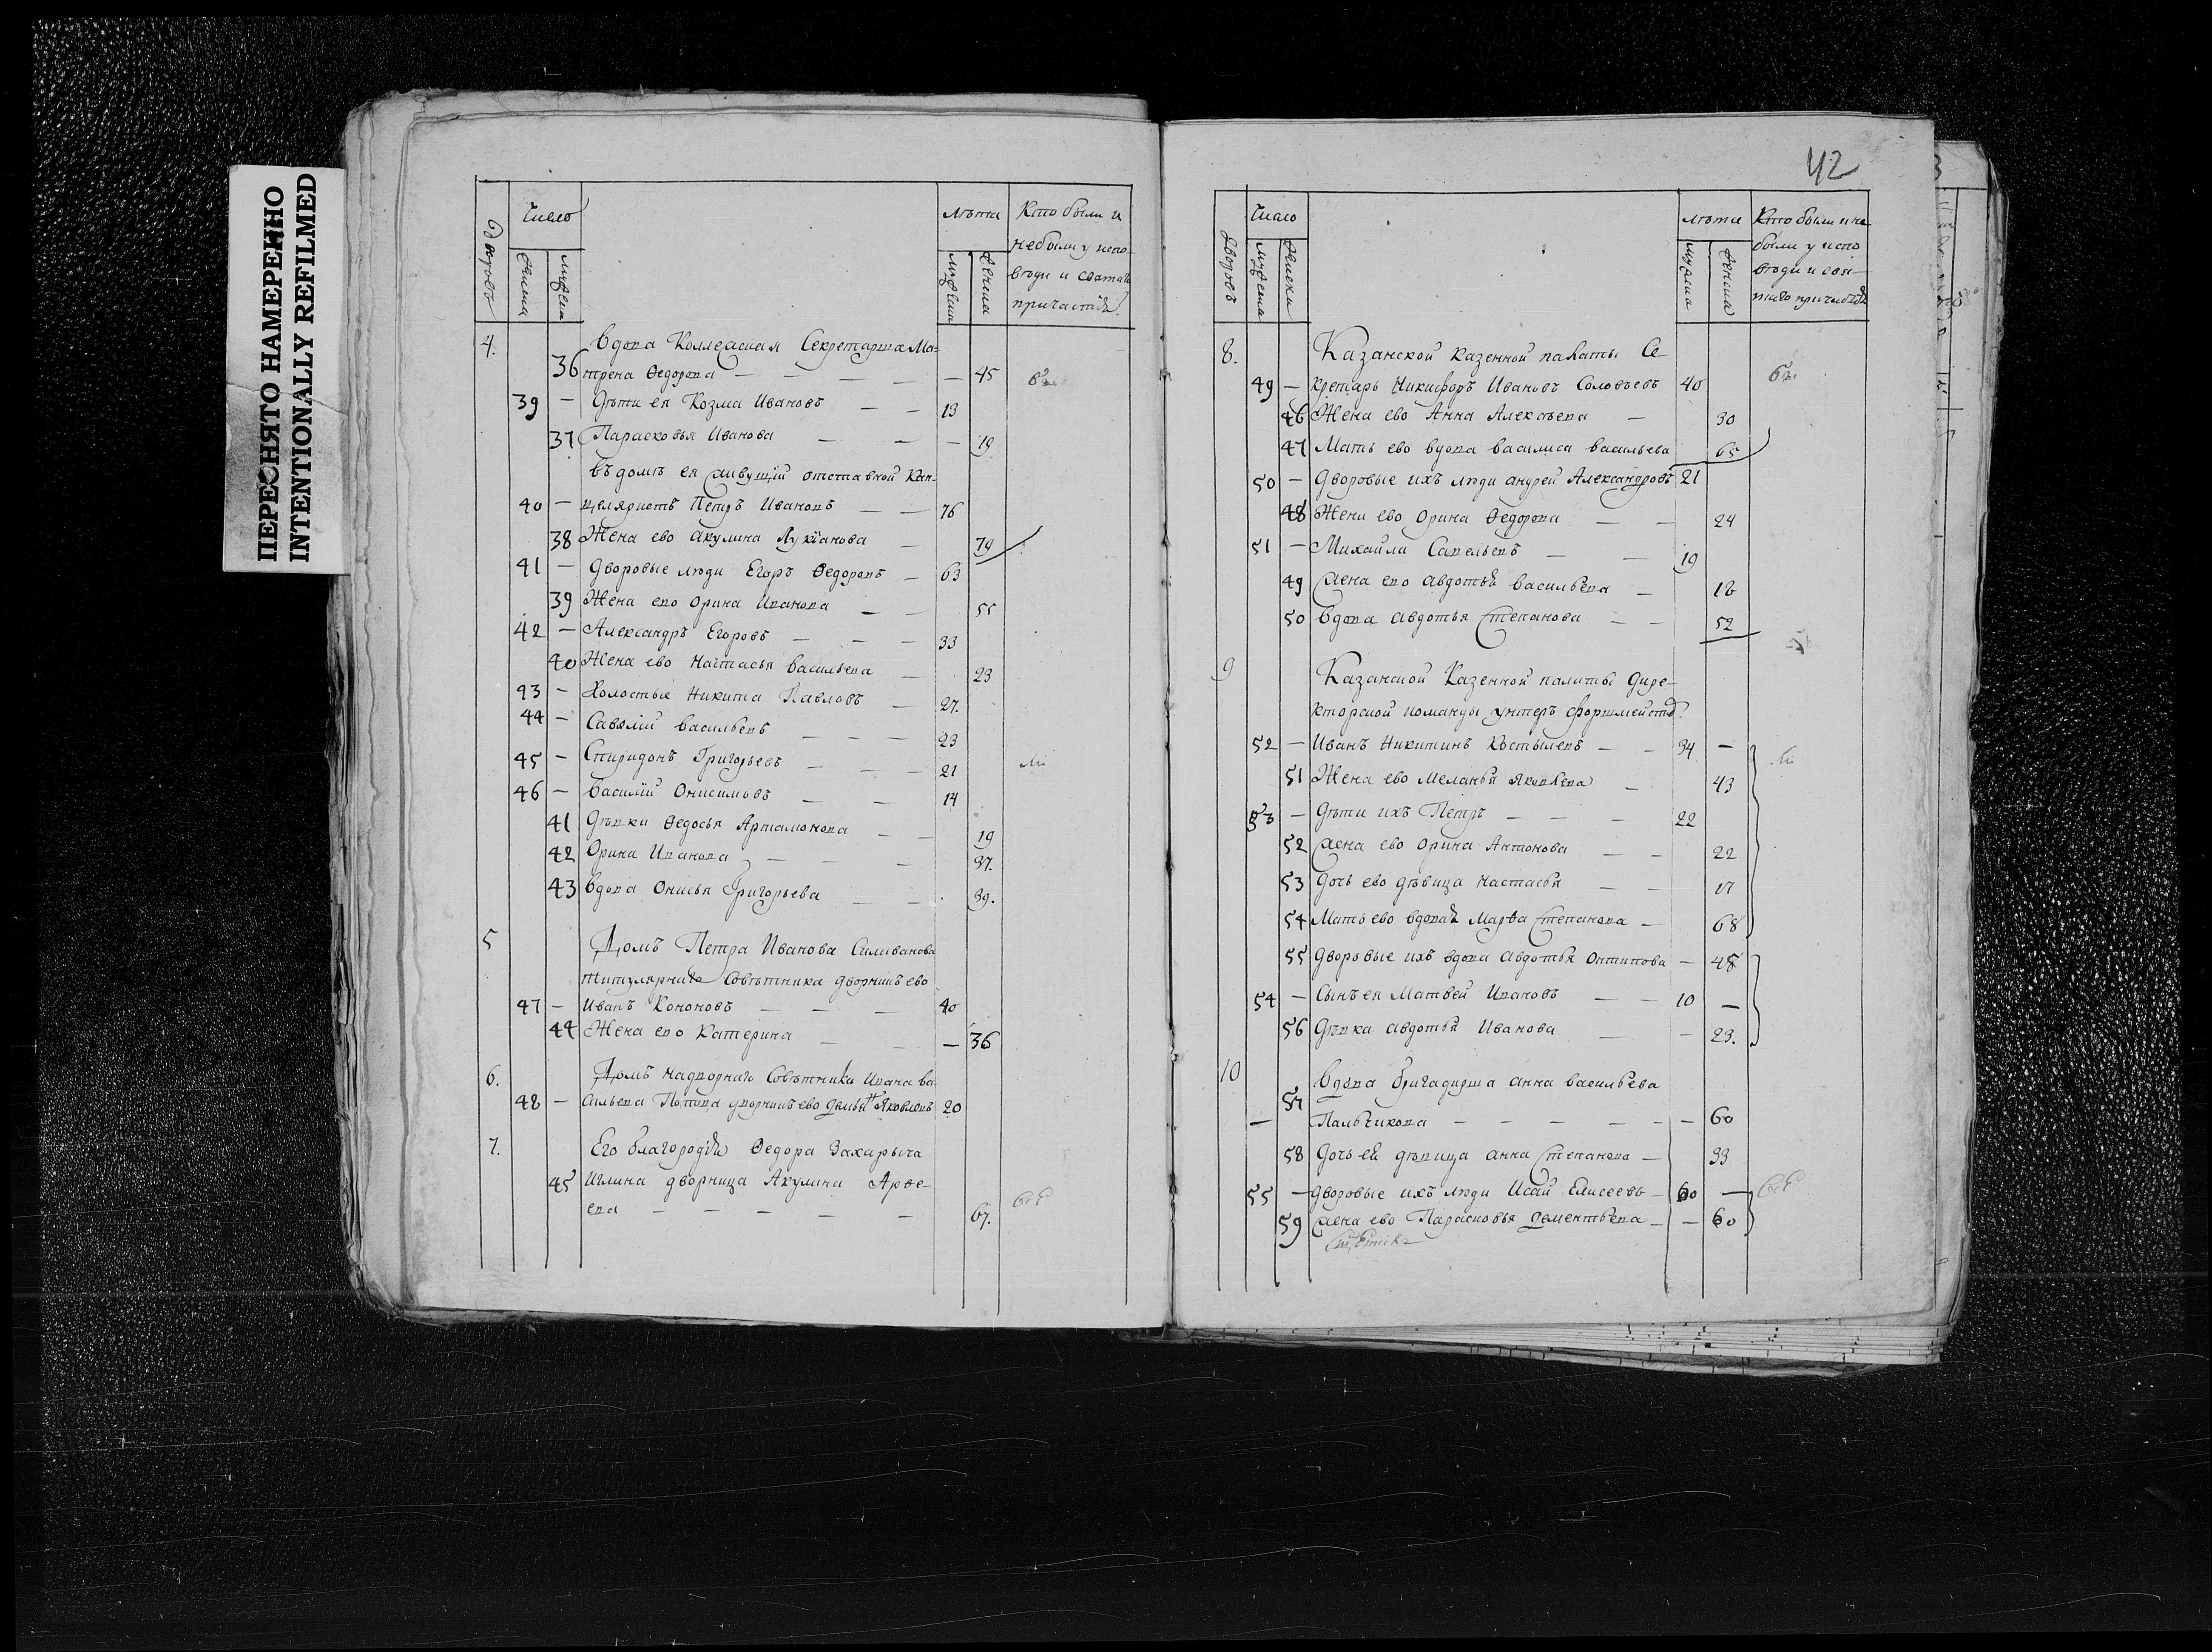 ПЕРЕСНЯТО НАМЕРЕННО
INTENTIONALLY REFILMED
дворовъ
Число
лѣта
Кто были и
не были у испо-
вѣди и святаго
причастія.
4. Вдова Коллежская Секретарша Ма-
36 трена Ѳедорова — 45
39 — Дѣти ея Козма Ивановъ — 13
37 Парасковья Иванова — 19
въ домѣ ея живущій отставной Кан-
40 — целяристъ Петръ Ивановъ — 76
38 Жена ево Акулина Лукіанова — 74
41 — Дворовые люди Егоръ Ѳедоровъ — 63
39 Жена ево Орина Иванова — 55
42 — Александръ Егоровъ — 33
40 Жена ево Настасья Васильева — 23
43 — Холостые Никита Павловъ — 27.
44 — Савѳлій Васильевъ — 23
45 — Спиридонъ Григорьевъ — 21
46 — Василій Онисимовъ — 14
41 Дѣвки Ѳедосья Артамонова — 19
42 Орина Иванова — 37.
43 Вдова Онисья Григорьева — 39.
5 Домъ Петра Иванова Силиванова
титулярнаго Совѣтника дворникъ ево
47 — Иванъ Кононовъ — 40
44 Жена ево Катерина — 36
6. Домъ Надворнаго Совѣтника Ивана Ва-
48 — сильева Попова дворникъ ево Яковлевъ 20
7. Его благородія Ѳедора Захарыча
45 дворница Акулина Арѳе-
ева — 67.
42
дворовъ
Число
лѣта
Кто были и не
были у испо
вѣди и свя-
таго причастія
8. Казанской казенной палаты Се-
49 — кретарь Никифоръ Ивановъ Соловьевъ 40
46 Жена ево Анна Алексѣева — 30
47 Мать ево вдова Василиса Васильева 65
50 — Дворовые ихъ люди Андрей Александровъ 21
48 Жена ево Орина Ѳедорова — 24
51 — Михайла Савельевъ — 19
49 Жена ево Авдотья Васильева — 18
50 Вдова Авдотья Степанова — 52
9 Казанской Казенной палаты Дире-
кторской команды унтеръ
52 — Иванъ Никитинъ Костылевъ — 34 —
51 Жена ево Меланья Яковлева — 43
53 — Дѣти ихъ Петръ — 22
52 Жена ево Орина Антонова — 22
53 Дочь ево дѣвица Настасья — 17
54 Мать ево вдова Марѳа Степанова — 68
55 Дворовые ихъ вдова Авдотья Онтипова — 48
54 — Сынъ ея Матвей Ивановъ — 10 —
56 Дѣвка Авдотья Иванова — 23.
10 Вдова бригадирша Анна Васильева
57 Пальчикова — 60
58 Дочь ея дѣвица Анна Степанова — 33
55 — Дворовые ихъ люди Исай Елисеевъ — 60 —
59 Жена ево Парасковья Дементьева — — 60